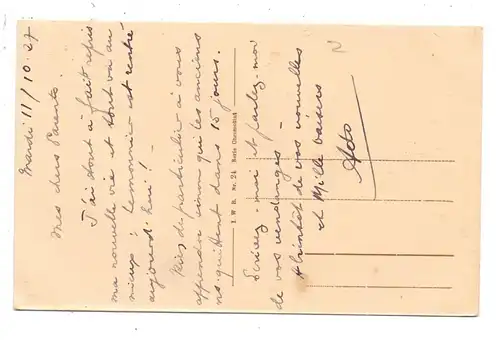 Mardi 11/10.27
Mes chers Parents.
J'ai tout à fait repris
ma nouvelle vie et tout va au
mieux. Lemonnier est rentré
aujourd'hui !
Rien de particulier à vous
apprendre sinon que les anciens
ns. quittent dans 15 jours.
I. W. B. Nr. 24 Serie
Écrivez-moi et parlez-moi
de vos vendanges
de vos nouvelles
et Mille baisers